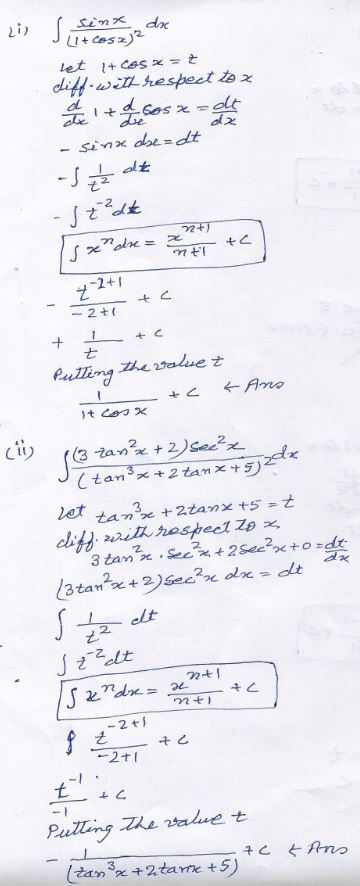 (i) ∫ sinx / (1+cosx)² dx
Let 1+cosx = t
diff. with respect to x
d/dx 1 + d/dx cos x = dt/dx
- sinx dx = dt
-∫ 1/t² dt
-∫ t⁻² dt
∫ xⁿ dx = xⁿ⁺¹/n+1 + c
- t⁻²⁺¹/-2+1 + c
+ 1/t + c
Putting the value t
1/1+cosx + c ← Ans
(ii) ∫ (3 tan²x + 2) sec²x / (tan³x + 2 tanx + 5)² dx
Let tan³x + 2tanx + 5 = t
diff. with respect to x
3 tan²x . sec²x + 2 sec²x + 0 = dt/dx
(3tan²x + 2) sec²x dx = dt
∫ 1/t² dt
∫ t⁻² dt
∫ xⁿ dx = xⁿ⁺¹/n+1 + c
t⁻²⁺¹/-2+1 + c
t⁻¹/-1 + c
Putting the value t
- 1/(tan³x + 2tanx + 5) + c ← Ans